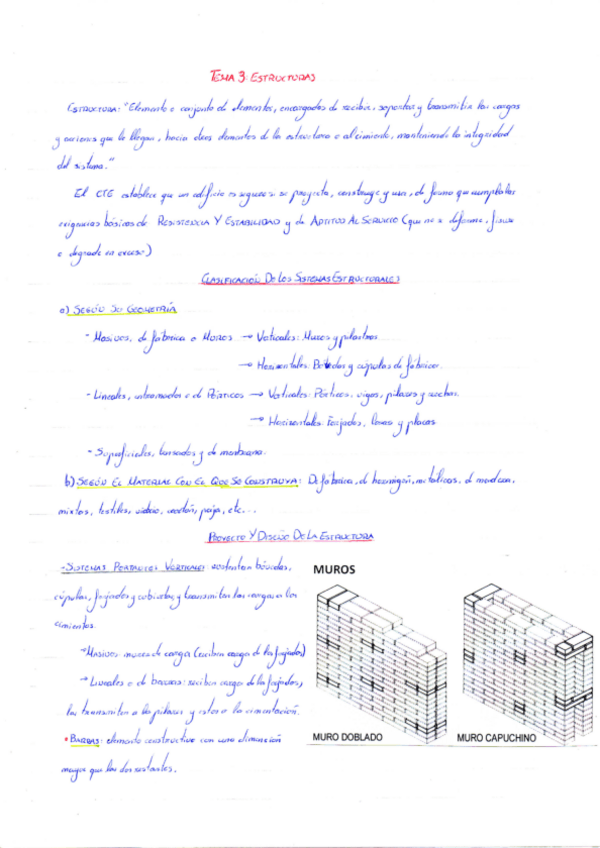 TEMA 3: ESTRUCTURAS
ESTRUCTURA: "Elemento o conjunto de elementos, encargados de recibir, soportar y transmitir las cargas
y acciones que le llegan, hacia otros elementos de la estructura o al cimiento, manteniendo la integridad
del sistema."
El CTE establece que un edificio es seguro si se proyecta, construye y usa, de forma que cumpla las
exigencias básicas de RESISTENCIA Y ESTABILIDAD y de APTITUD AL SERVICIO (que no se deforme, fisure
o degrade en exceso)
CLASIFICACIÓN DE LOS SISTEMAS ESTRUCTURALES
a) SEGÚN SU GEOMETRÍA
- Masivos, de fábrica o MUROS → Verticales: Muros y pilastras
→ Horizontales: Bóvedas y cúpulas de fábrica.
- Lineales, entramados o de PÓRTICOS → Verticales: Pórticos, vigas, pilares y cerchas.
→ Horizontales: Forjados, losas y placas
- Superficiales, tensados y de membrana.
b) SEGÚN EL MATERIAL CON EL QUE SE CONSTRUYA: De fábrica, de hormigón, metálicas, de madera,
mixtas, textiles, vidrio, cartón, paja, etc...
PROYECTO Y DISEÑO DE LA ESTRUCTURA
- SISTEMAS PORTANTES VERTICALES: sustentan bóvedas,
cúpulas, forjados y cubiertas, y transmiten las cargas a los
cimientos.
→ Masivos: muros de carga (reciben carga de los forjados)
→ Lineales o de barras: reciben carga de los forjados,
las transmiten a los pilares y estos a la cimentación.
* BARRAS: elemento constructivo con una dimensión
mayor que las dos restantes.
MUROS
MURO DOBLADO
MURO CAPUCHINO